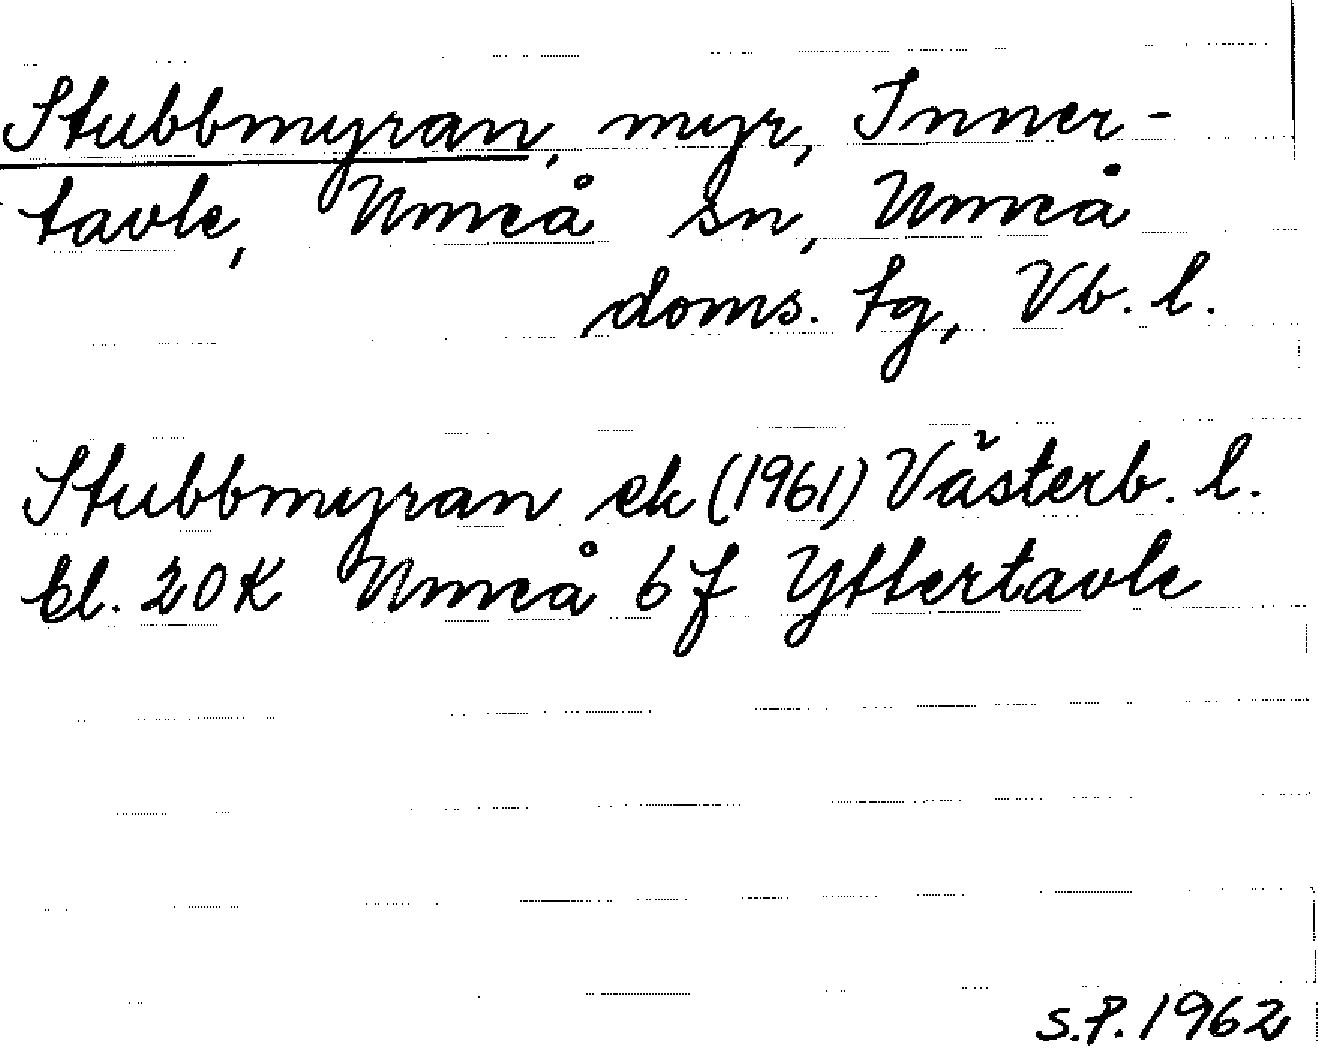 Stubbmyran, myr, Inner-
tavle, Umeå sn, Umeå
doms. tg, Vb. l.
Stubbmyran ek (1961) Västerb. l.
bl. 20K Umeå 6f Yttertavle
S.P. 1962